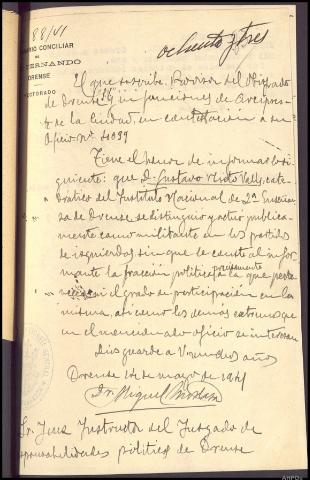 88/41
ochenta y tres
ARIO CONCILIAR
DE
FERNANDO
ORENSE
CTORADO
El que suscribe, Provisor del Obispado
de Orense y en funciones de Arcipres-
te de la Ciudad, en contestación a su
Oficio nº 4039
Tiene el honor de informar lo si-
guiente: que D. Gustavo Valls, cate-
drático del Instituto Nacional de 2ª Enseñan
za de Orense se distinguió y actuó publica-
mente como militante en los partidos
de izquierdas, sin que le conste al infor-
mante la fracción política a la que precisamente perte-
nece ni el grado de participación en la
misma, así como los demás extremos que
en el mencionado oficio se interesan
Dios guarde a V. muchos años
Orense 14 de mayo de 1941
Dr. Miguel
Sr. Juez Instructor del Juzgado de
sponsabilidades políticas de Orense